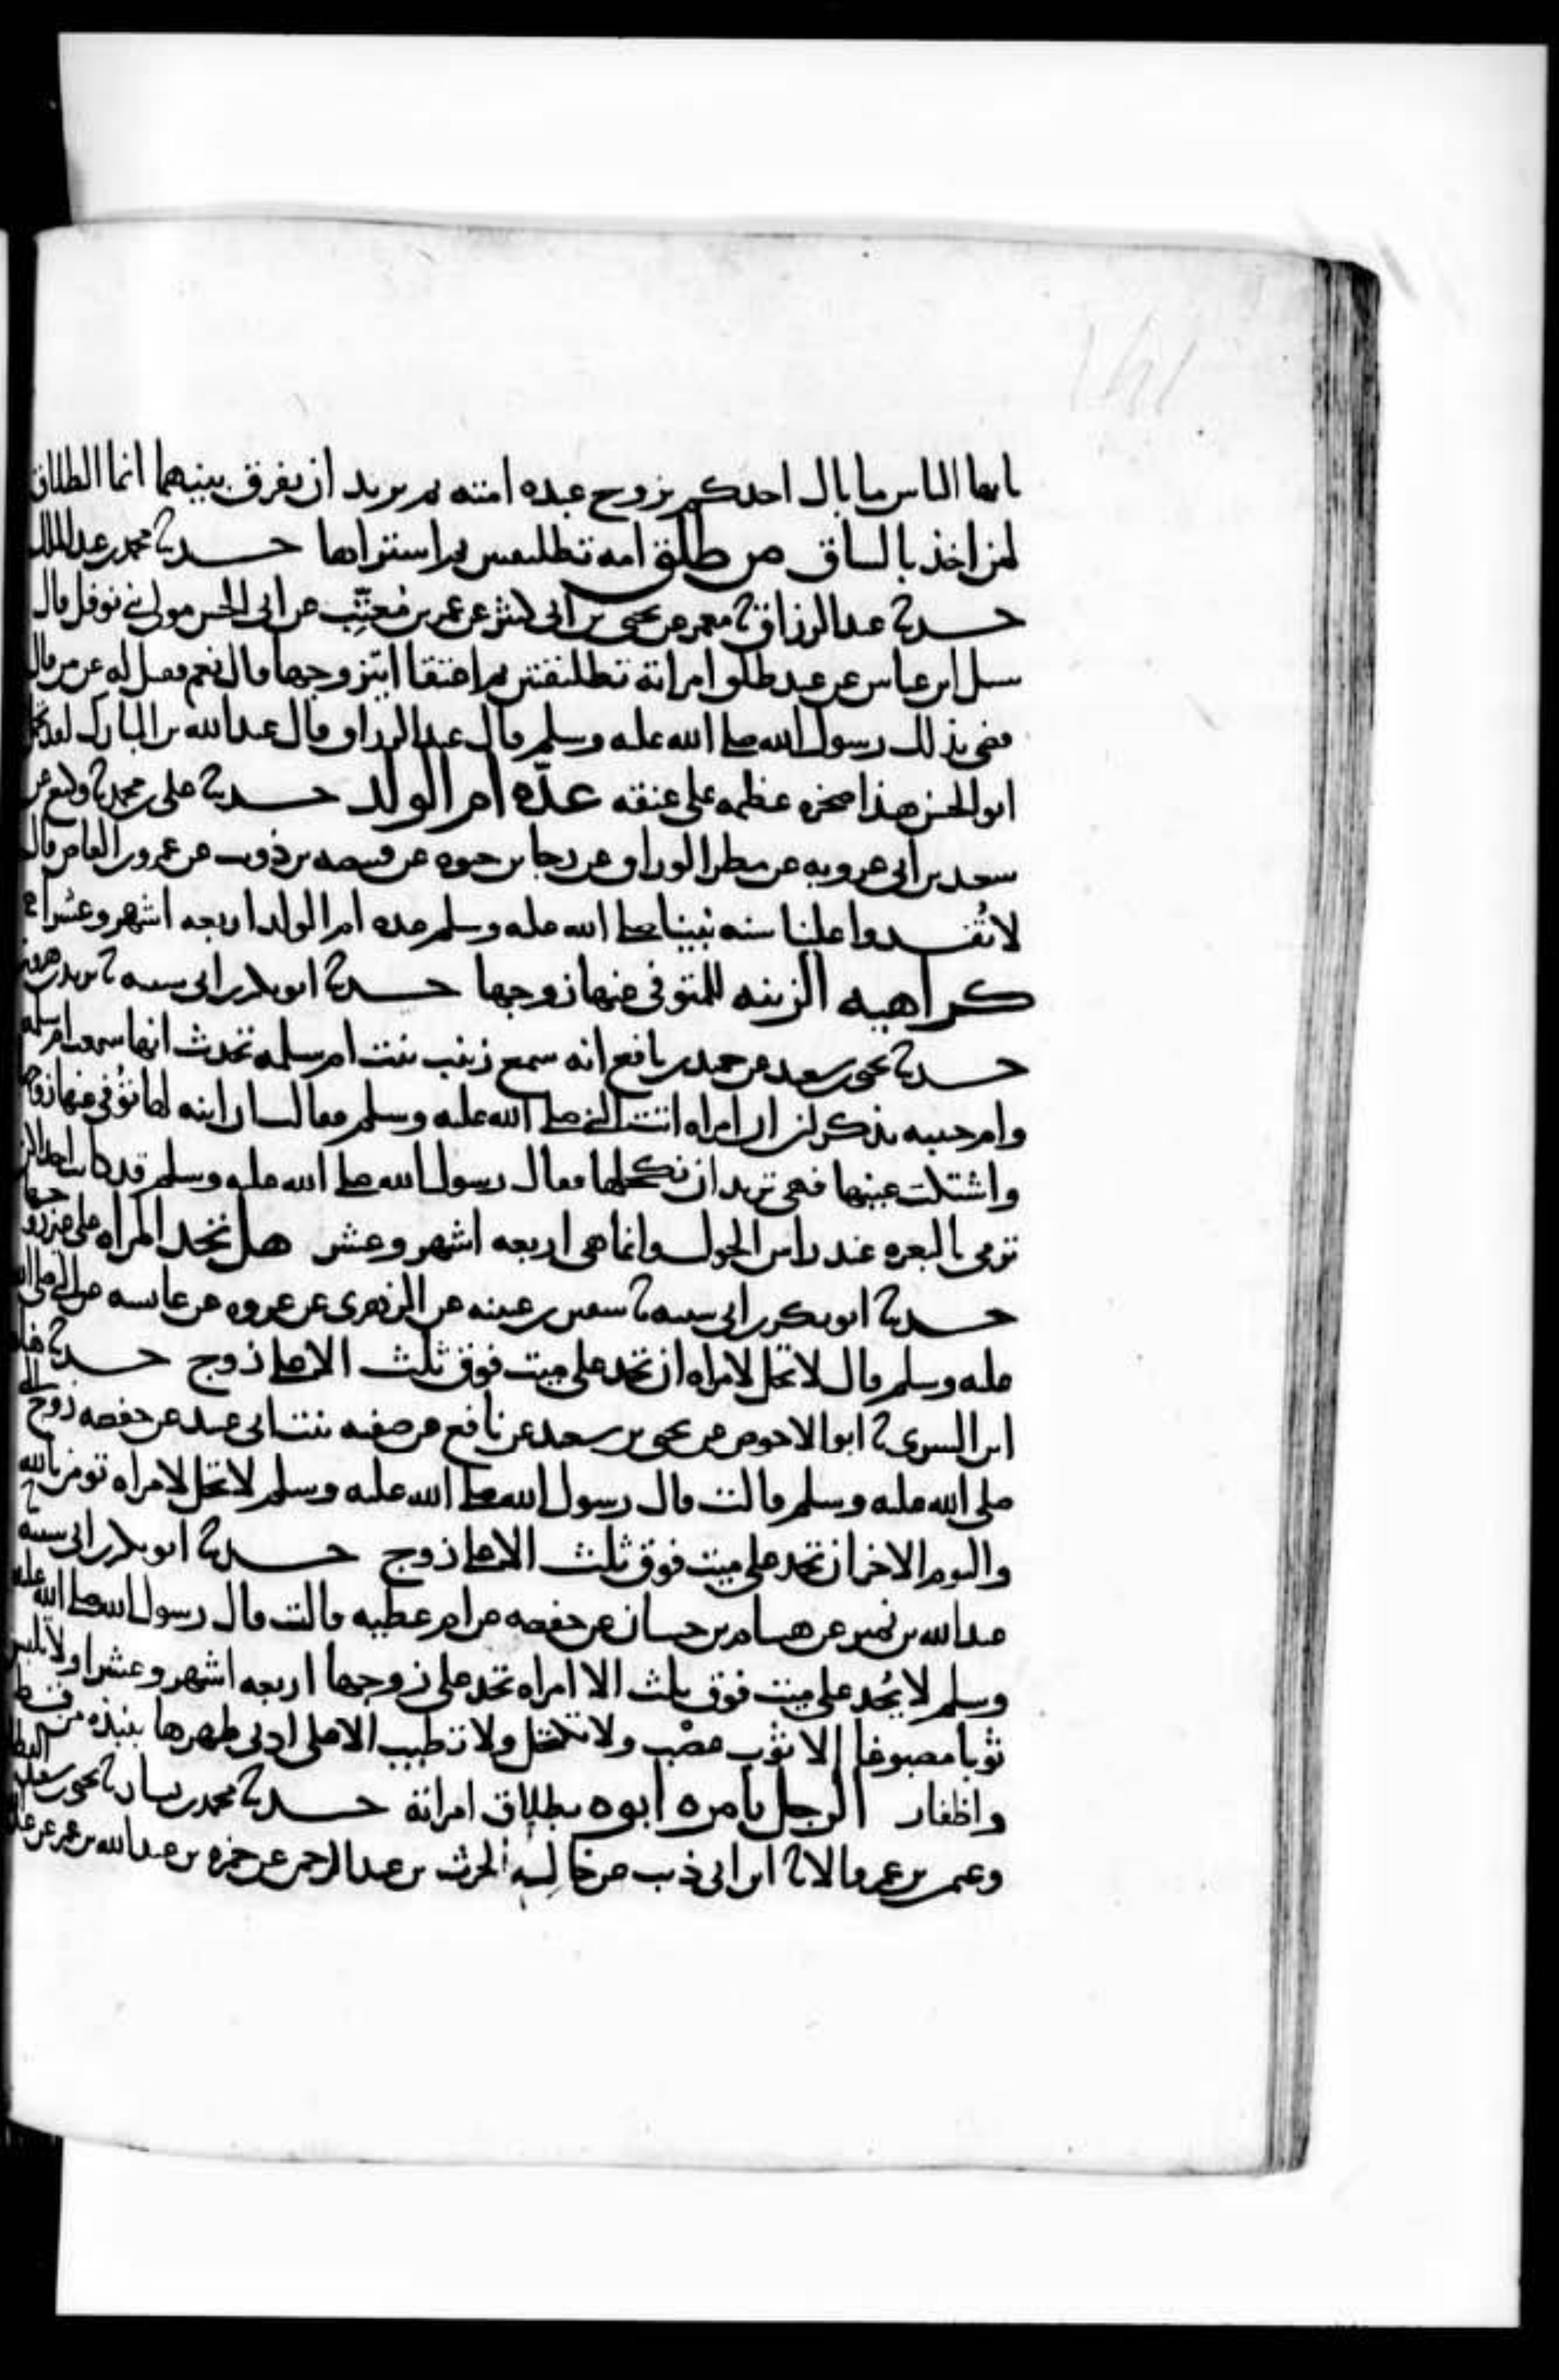 يا ايها الناس ما بال احدكم يزوج عبده امته ثم يريد ان يفرق بينهما انما الطلاق
لمن اخذ بالساق من طلق امه تطليقتين ثم اشتراها حدثنا محمد بن عبد الملك
حدثنا عبد الرزاق نا معمر عن يحيى بن ابي كثير عن عمر بن مُعتِّب عن ابي الحسن مولى بني نوفل قال
سئل ابن عباس عن عبد طلق امراته تطليقتين ثم اعتقا ايتزوجها قال نعم فقيل له عن من قال
قضى بذلك رسول الله صلى الله عليه وسلم قال عبد الرزاق وقال عبد الله بن المبارك لقد تحمل
ابو الحسن هذا صخره عظيمه على عنقه عدّه ام الولد حدثنا علي بن محمد نا وكيع عن
سعيد بن ابي عروبه عن مطر الوراق عن رجا بن حيوه عن قبيصه بن ذويب عن عمرو بن العاص قال
لا تُفسدوا علينا سنه نبينا صلى الله عليه وسلم عده ام الولد اربعه اشهر وعشرا
كراهيه الزينه للمتوفى عنها زوجها حدثنا ابو بكر بن ابي شيبه نا يزيد بن هرون
حدثنا يحيى بن سعيد عن حميد بن نافع انه سمع زينب بنت ام سلمه تحدث انها سمعت ام سلمه
وام حبيبه يذكرن ان امراه اتت النبي صلى الله عليه وسلم فقالت ان ابنه لها تُوُفي عنها زوجها
واشتكت عينها فهي تريد ان تكحلها فقال رسول الله صلى الله عليه وسلم قد كانت احداكن
ترمي بالبعره عند راس الحول وانما هي اربعه اشهر وعشر هل تحد المراه على غير زوجها
حدثنا ابو بكر بن ابي شيبه نا سفين بن عيينه عن الزهري عن عروه عن عايشه عن النبي صلى الله
عليه وسلم قال لا تحل لامراه ان تحد على ميت فوق ثلث الا على زوج حدثنا هناد
ابن السري نا ابو الاحوص عن يحيى بن سعيد عن نافع عن صفيه بنت ابي عبيد عن حفصه زوج النبي
صلى الله عليه وسلم قالت قال رسول الله صلى الله عليه وسلم لا تحل لامراه تومن بالله
واليوم الاخر ان تحد على ميت فوق ثلث الا على زوج حدثنا ابو بكر بن ابي شيبه نا
عبد الله بن نمير عن هشام بن حسان عن حفصه عن ام عطيه قالت قال رسول الله صلى الله عليه
وسلم لا يُحد على ميت فوق ثلث الا امراه تحد على زوجها اربعه اشهر وعشرا ولا تلبس
ثوبا مصبوغا الا ثوب عصْب ولا تكتحل ولا تطيب الا على ادنى طهرها بنبذه من قسط
واظفار الرجل يامره ابوه بطلاق امراته حدثنا محمد بن بشار نا يحيى بن سعيد القطان
وعثمن بن عمر قالا نا ابن ابي ذيب عن خاله الحرث بن عبد الرحمن عن حمزه بن عبد الله بن عمر عن عبد